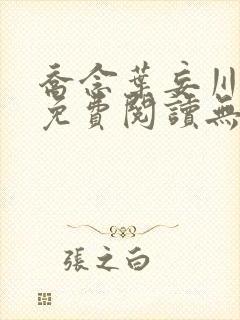 喬念葉妄川
免費閱讀無
張之白